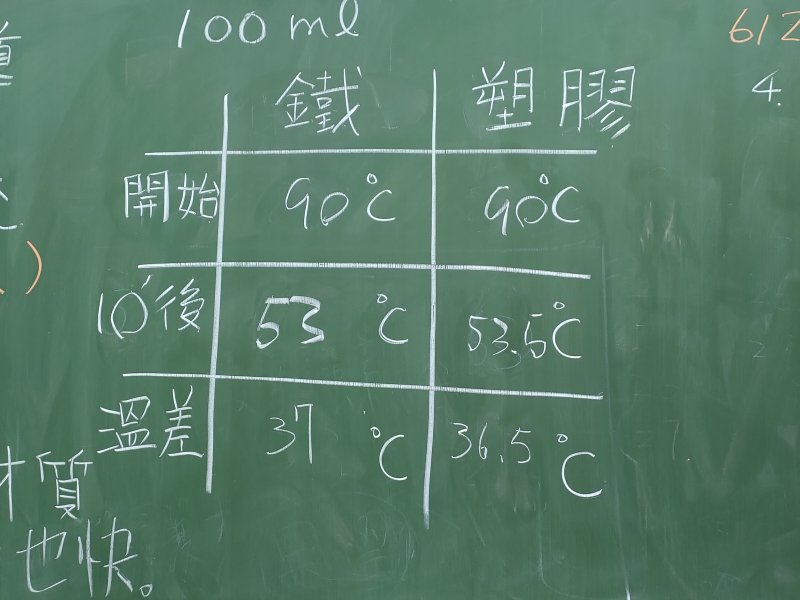 100 ml
612
4.
鐵 塑膠
開始 90°C 90°C
)
10'後 53 °C 53.5°C
溫差 37 °C 36.5 °C
材質
也快。